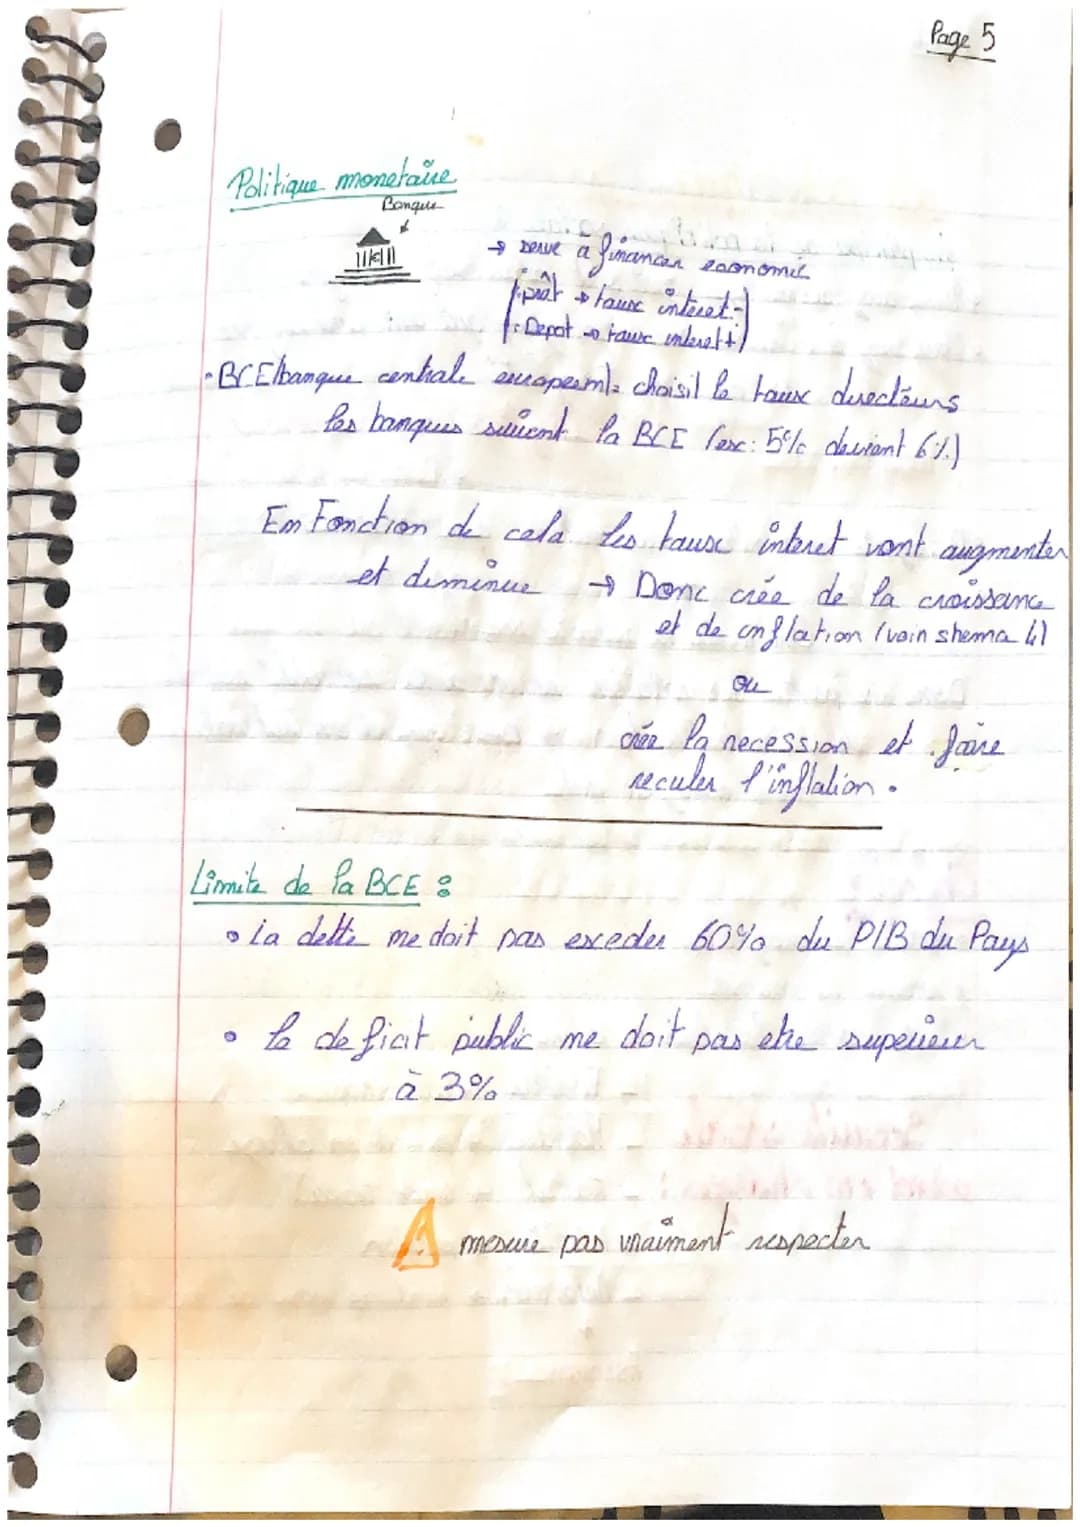 Page 5
Politique monetaire
Banque
→ serve à financer economie
(. prêt → taux interet -)
(. Depot → taux interet +)
• BCE (banque centrale europeenn): choisit le taux directeurs
les banques suivent la BCE (ex: 5% devient 6%)
En Fonction de cela les taux interet vont augmenter
et diminue → Donc crée de la croissance
et de inflation (voir shema 4)
ou
crée la recession et faire
reculer l'inflation.
Limite de la BCE :
• La dette ne doit pas exceder 60% du PIB du Pays
• le deficit public ne doit pas etre superieur
à 3%
! mesure pas vraiment respecter